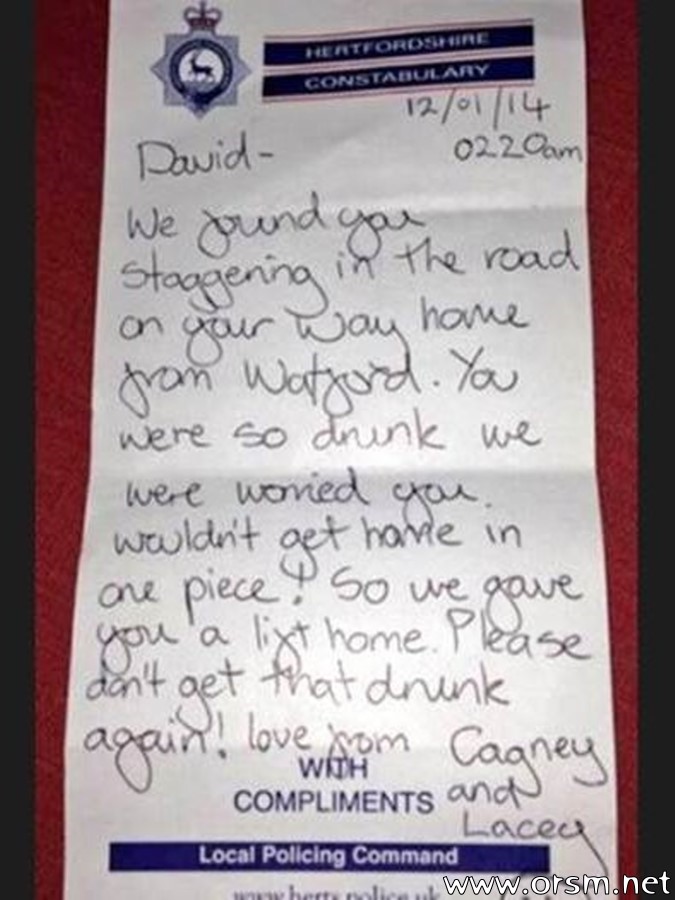 HERTFORDSHIRE
CONSTABULARY
12/01/14
David - 0220am
We found you
staggering in the road
on your way home
from Watford. You
were so drunk we
were worried you.
wouldn't get home in
one piece! So we gave
you a lift home. Please
don't get that drunk
again! love from Cagney
WITH
COMPLIMENTS and
Lacey
Local Policing Command
www.herts.police.uk
www.orsm.net